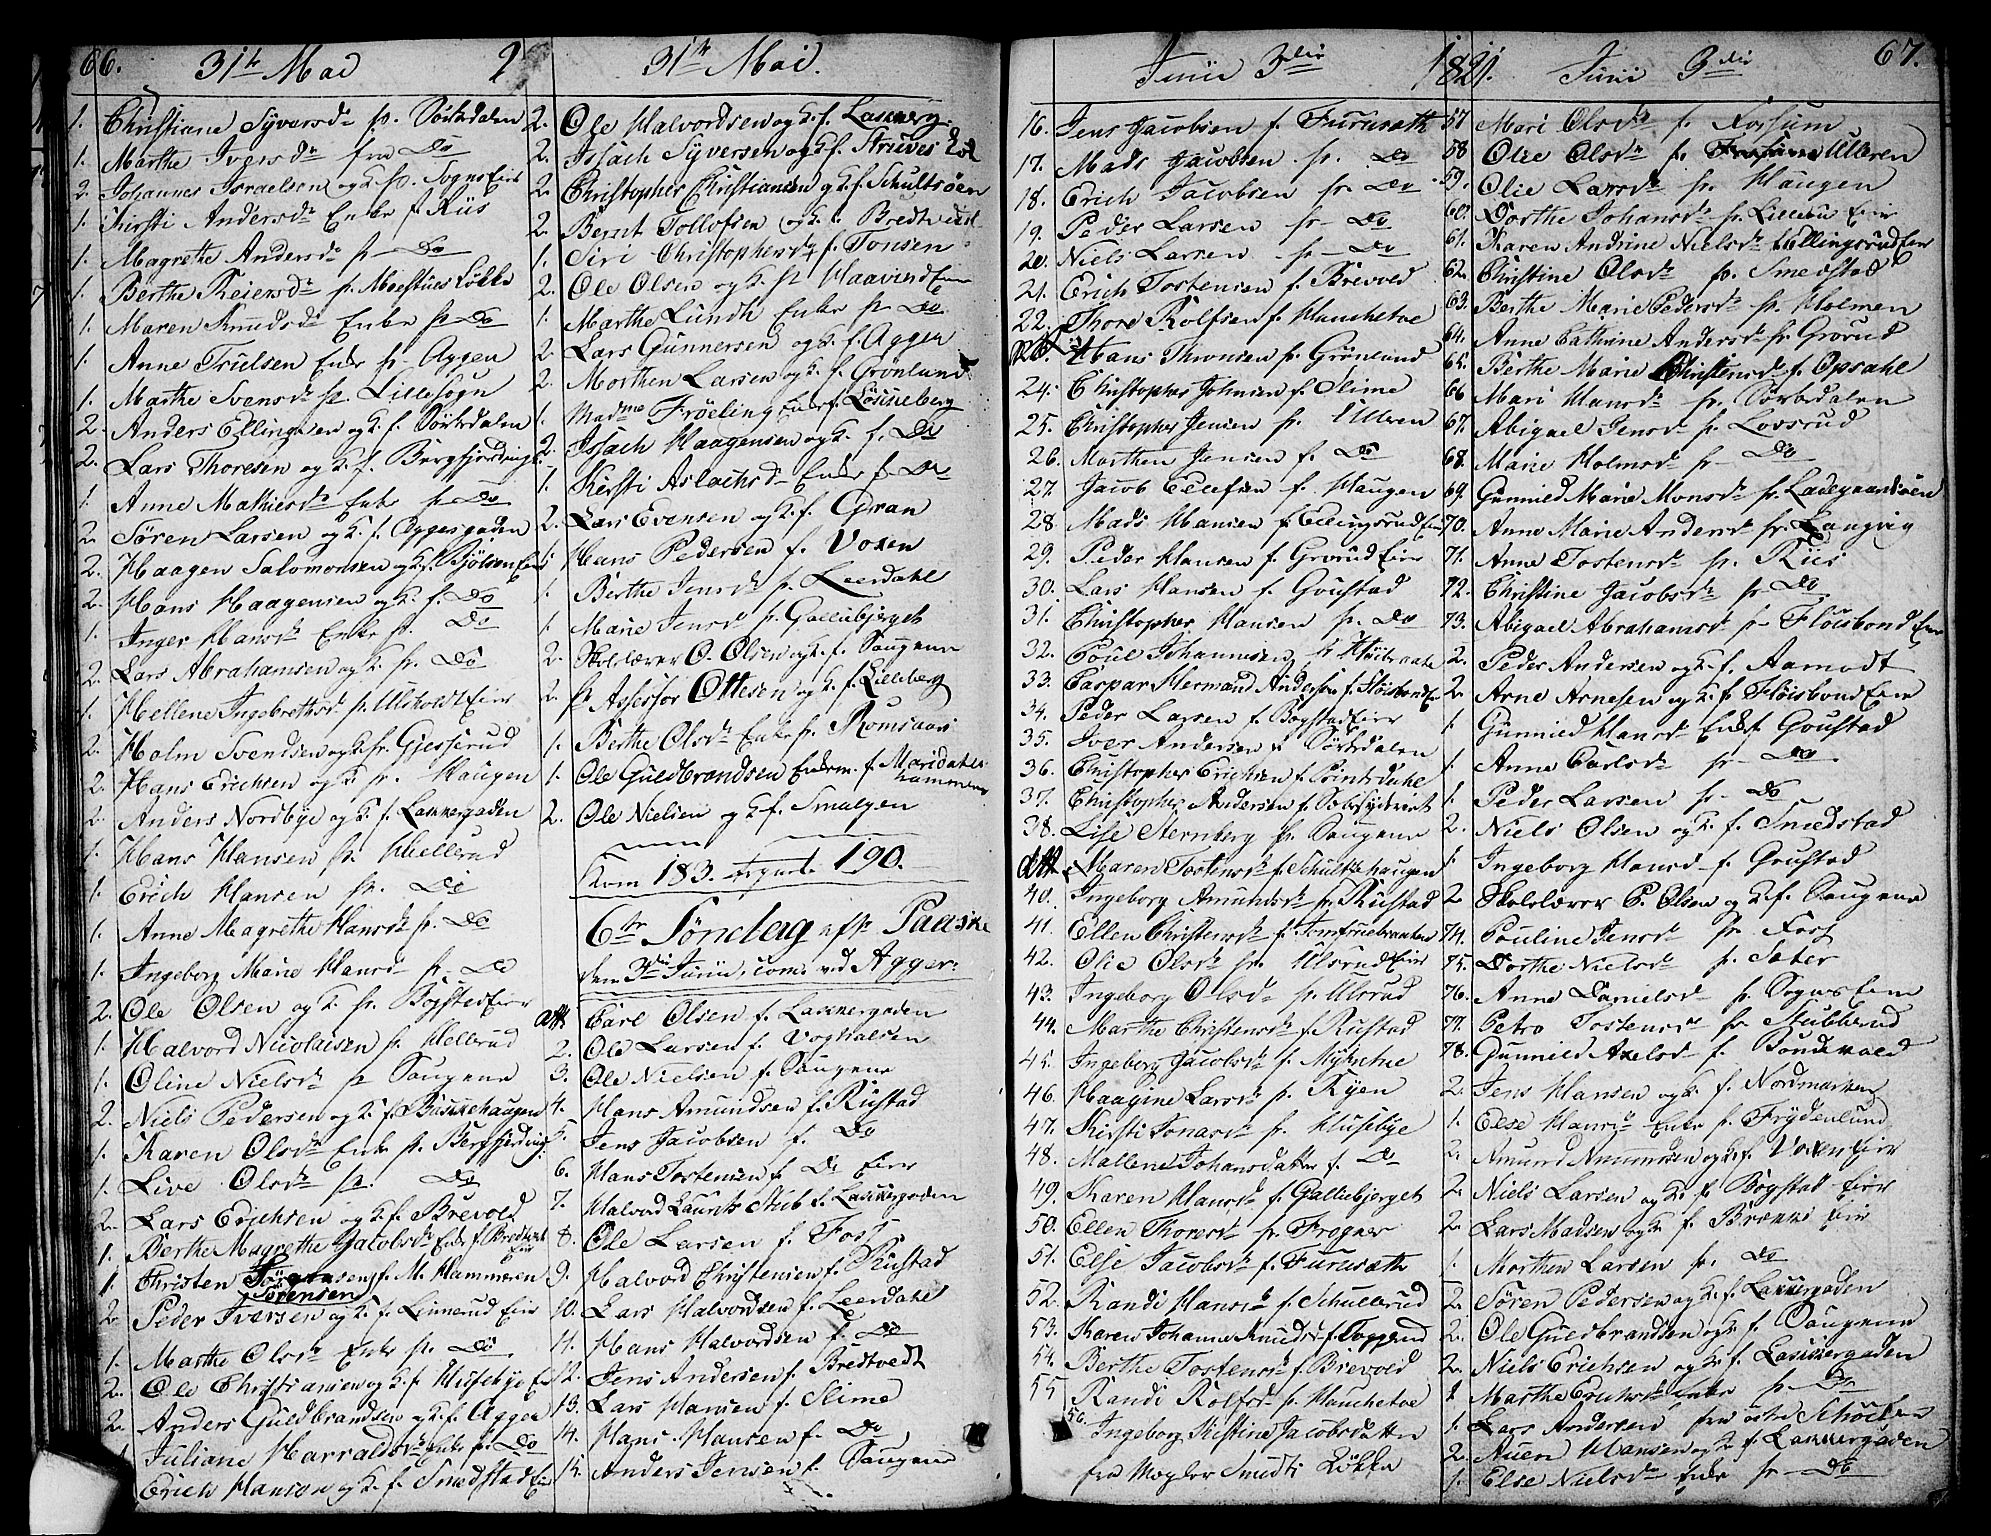 66. 31te Mai 2
1. Christiane Syversdr fr. Sörkdalen
1. Marthe Iversdr fra Do
2. Johannes Israelsen og K. fr. Sogns Eier
1. Kirsti Andersdr Enke f. Riis
1. Magrethe Andersdr fr Do
1. Berthe Reiersdr fr. Løkke
1. Maren Knudsdr Enke fr Do
1. Anne Truelsen Enke fr Aggen
1. Marthe Svensdr fr Lillesogn
2. Anders Ellingsen og K. f. Sörkdalen
2. Lars Thoresen og K. f.
1. Anne Mathiesdr Enke fr Do
2. Sören Larsen og K. f. Aggersgaden
2. Haagen Salomonsen og K. f. Bjölsen Eier
2. Hans Haagensen og K. f. Do
1. Inger Hansdr Enke fr. Do
2. Lars Abrahamsen og K. fr. Do
1. Hellene Ingebrethsdr fr Ulsholt Eier
2. Holm Svendsen og K. fr. Gjesserud
2. Hans Erichsen og K. fr. Haugen
2. Anders Nordbye og K. f. Lakkergaden
1. Hans Hansen fr. Hellerud
1. Erich Hansen fr. Do
1. Anne Magrethe Hansdr fr. Do
1. Ingeborg Marie Hansdr fr. Do
2. Ole Olsen og K. fr. Bogsted Eier
1. Halvord Nicolaisen fr Hellerud
1. Oline Nielsdr fr Saugene
2. Niels Pedersen og K. f. Bakkehaugen
1. Karen Olsdr Enke fr. Bergfjerding
1. Live Olsdr fr. Do
2. Lars Erichsen og K. f. Brevold
1. Berthe Magrethe Jacobsdr Enke f. Eier
1. Christen Sörensen f. M. Hammeren
2. Peder Iversen og K. f. Linnerud Eier
1. Marthe Olsdr Enke fr. Do
2. Ole Christiansen og K. f. Husebye Ei
2. Anders Guldbrandsen og K. f. Aggen
1. Juliane Harraldsdr Enke fr. Do
Erich Hansen og K. f. Smedstad Eier
31te Mai.
2. Ole Halvordsen og K. f. Lakkerg.
2. Issach Syversen og K. f. Struves Løk
2. Christopher Christiansen og K. f. Schultsøen
2. Bernt Tollofsen og K. f. Bredtvedt
1. Siri Christophersdr f. Tonsen
2. Ole Olsen og K. fr Haavind Eier
1. Marthe Lundh Enke fr Do
2. Lars Gunnersen og K. f. Aggen
2. Morthen Larsen og K. f. Grønland
1. Madme Fröeling Enke f. Lönneberg
2. Issach Haagensen og K. f. Do
1. Kirsti Aslachsdr Enke f. Do
2. Lars Evensen og K. f. Gran
1. Hans Pedersen f. Voxen
1. Berthe Jensdr fr. Leerdahl
1. Marie Jensdr fr. Galleberget
2. Skolelærer O. Olsen og K. f. Saugene
2. Hr Assessor Ottesen og K. f. Lilleberg
1. Berthe Olsdr Enke fr. Romsaas
1. Ole Guldbrandsen Enkem. f. Maridahls
hammeren
2. Ole Nielsen og K. f. Smalgen
Kom 183. 190.
6te Söndag eft Paaske
den 3die Junii, com. ved Agger.
Carl Olsen f. Lakkergaden
2. Ole Larsen f. Voghalsen
3. Ole Nielsen f. Saugene
4. Hans Amundsen f. Rustad
5. Jens Jacobsen f. Do
6. Hans Tostensen f. Do Eier
7. Halvord Laurits Stub f. Lakkergaden
8. Ole Larsen f. Foss
9. Halvord Christensen f. Rustad
10. Lars Halvordsen f. Leerdahl
11. Hans Halvordsen f. Do
12. Jens Andersen f. Bredtvedt
13. Lars Hansen f. Slime
14. Hans Hansen f. Do
15. Anders Jensen f. Saugene
Junii 3die 1821.
16. Jens Jacobsen f. Furusæth
17. Mads Jacobsen fr. Do
18. Erich Jacobsen fr Do
19. Peder Larsen fr Do
20. Niels Larsen fr Do
21. Erich Tostensen f. Brevold
22. Thore Rolfsen f. Hauchetve
Hans Thronsen fr. Grönland
24. Christopher Johnsen f. Slime
25. Christopher Jensen fr. Ulleren
26. Morthen Jensen f. Do
27. Jacob Ellefsen f. Haugen
28. Mads Hansen f. Ellingsrud Eier
29. Peder Hansen f. Grorud Eier
30. Lars Hansen f. Goustad
31. Christopher Hansen fr. Do
32. Poul Johannesen fr Høibraate
33. Caspar Hermand Andersen f. Fløisbond Ei
34. Peder Larsen f. Bogstad Eier
35. Iver Andersen f. Sörkdalen
36. Christopher Erichsen f.
37. Christopher Andersen f.
38. Lise Sternberg fr. Saugene
Maren Tostensdr f. Schultzehaugen
40. Ingeborg Amundsdr fr Rustad
41. Ellen Christensdr f. Jomfruebraaten
42. Olie Olsdr fr. Ulsrud Eier
43. Ingeborg Olsdr fr. Ulsrud
44. Marthe Christensdr f. Rustad
45. Ingeborg Jacobsdr f. Myhretve
46. Haagine Larsdr fr. Ryen
47. Kirsti Jonasdr fr. Husebye
48. Mallene Johansdatter f. Do
49. Karen Hansdr f. Galleberget
50. Ellen Thoresdr fr. Frogner
51. Else Jacobsdr f. Furusæth
52. Randi Hansdr f. Schullerud
53. Karen Johanne Knudsdr f. Toppend
54. Berthe Tostensdr f. Brevold
55 Randi Rolfsdr fr. Hauchetve
56. Ingeborg Kistine Jacobsdatter
fra Mogler Smeds Løkke
Junii 3die 67.
57 Mari Olsdr f. Fossum
58 Olie Olsdr f. Ulleren
59. Olie Larsdr fr. Haugen
60. Dorthe Johansdr fr. Lillebu Eier
61. Karen Andrine Nielsdr f. Ellingsrud Eier
62. Christine Olsdr fr. Smedstad
63. Berthe Marie Pedersdr fr. Holmen
64. Anne Cathrine Andersdr fr. Grorud
65. Berthe Marie Christensdr f. Opsahl
66 Mari Hansdr fr. Sörkdalen
67. Abigael Jensdr fr. Lofsrud
68. Marie Holmsdr fr Do
69. Gunnild Marie Monsdr fr. Ladegaardsöen
70. Anne Marie Andersdr fr. Langvig
71. Anne Tostensdr fr. Riis
72. Christine Jacobsdr fr Do
73. Abigael Abrahamsdr fr Fløisbond Eier
2. Peder Andersen og K. f. Aamodt
2. Arne Arnesen og K. f. Fløisbond Eier
1 Gunnild Hansdr Enke f. Goustad
1. Anne Carlsdr fr Do
1. Peder Larsen fr Do
2. Niels Olsen og K. f. Smedstad
1. Ingeborg Hansd f. Goustad
2 Skolelærer P. Olsen og K. f. Saugene
74. Pouline Jensdr fr. Foss
75. Dorthe Nielsdr f. Seter
76. Anne Danielsdr fr. Sogns Eier
77. Petro Tostensdr fr. Stubberud
78. Gunnild Axelsdr f. Bondevold
2. Jens Hansen og K. f. Nordmarken
1. Else Hansdr Enke fr. Frydenlund
2. Amund Amundsen og K. f. Voxen Eier
2. Niels Larsen og K. f. Bogstad Eier
2. Lars Madsen og K. f. Brække Eier
1. Morthen Larsen fr. Do
2. Sören Pedersen og K. f. Lakkergaden
2. Ole Guldbrandsen og K. f. Saugene
2. Niels Erichsen og K. f. Lakkergaden
1 Marthe Erichsdr Enke fr Do
1. Lars Andersen fra
2. Auen Hansen og K. f. Lakkergaden
1. Else Nielsdr Enke fr Do